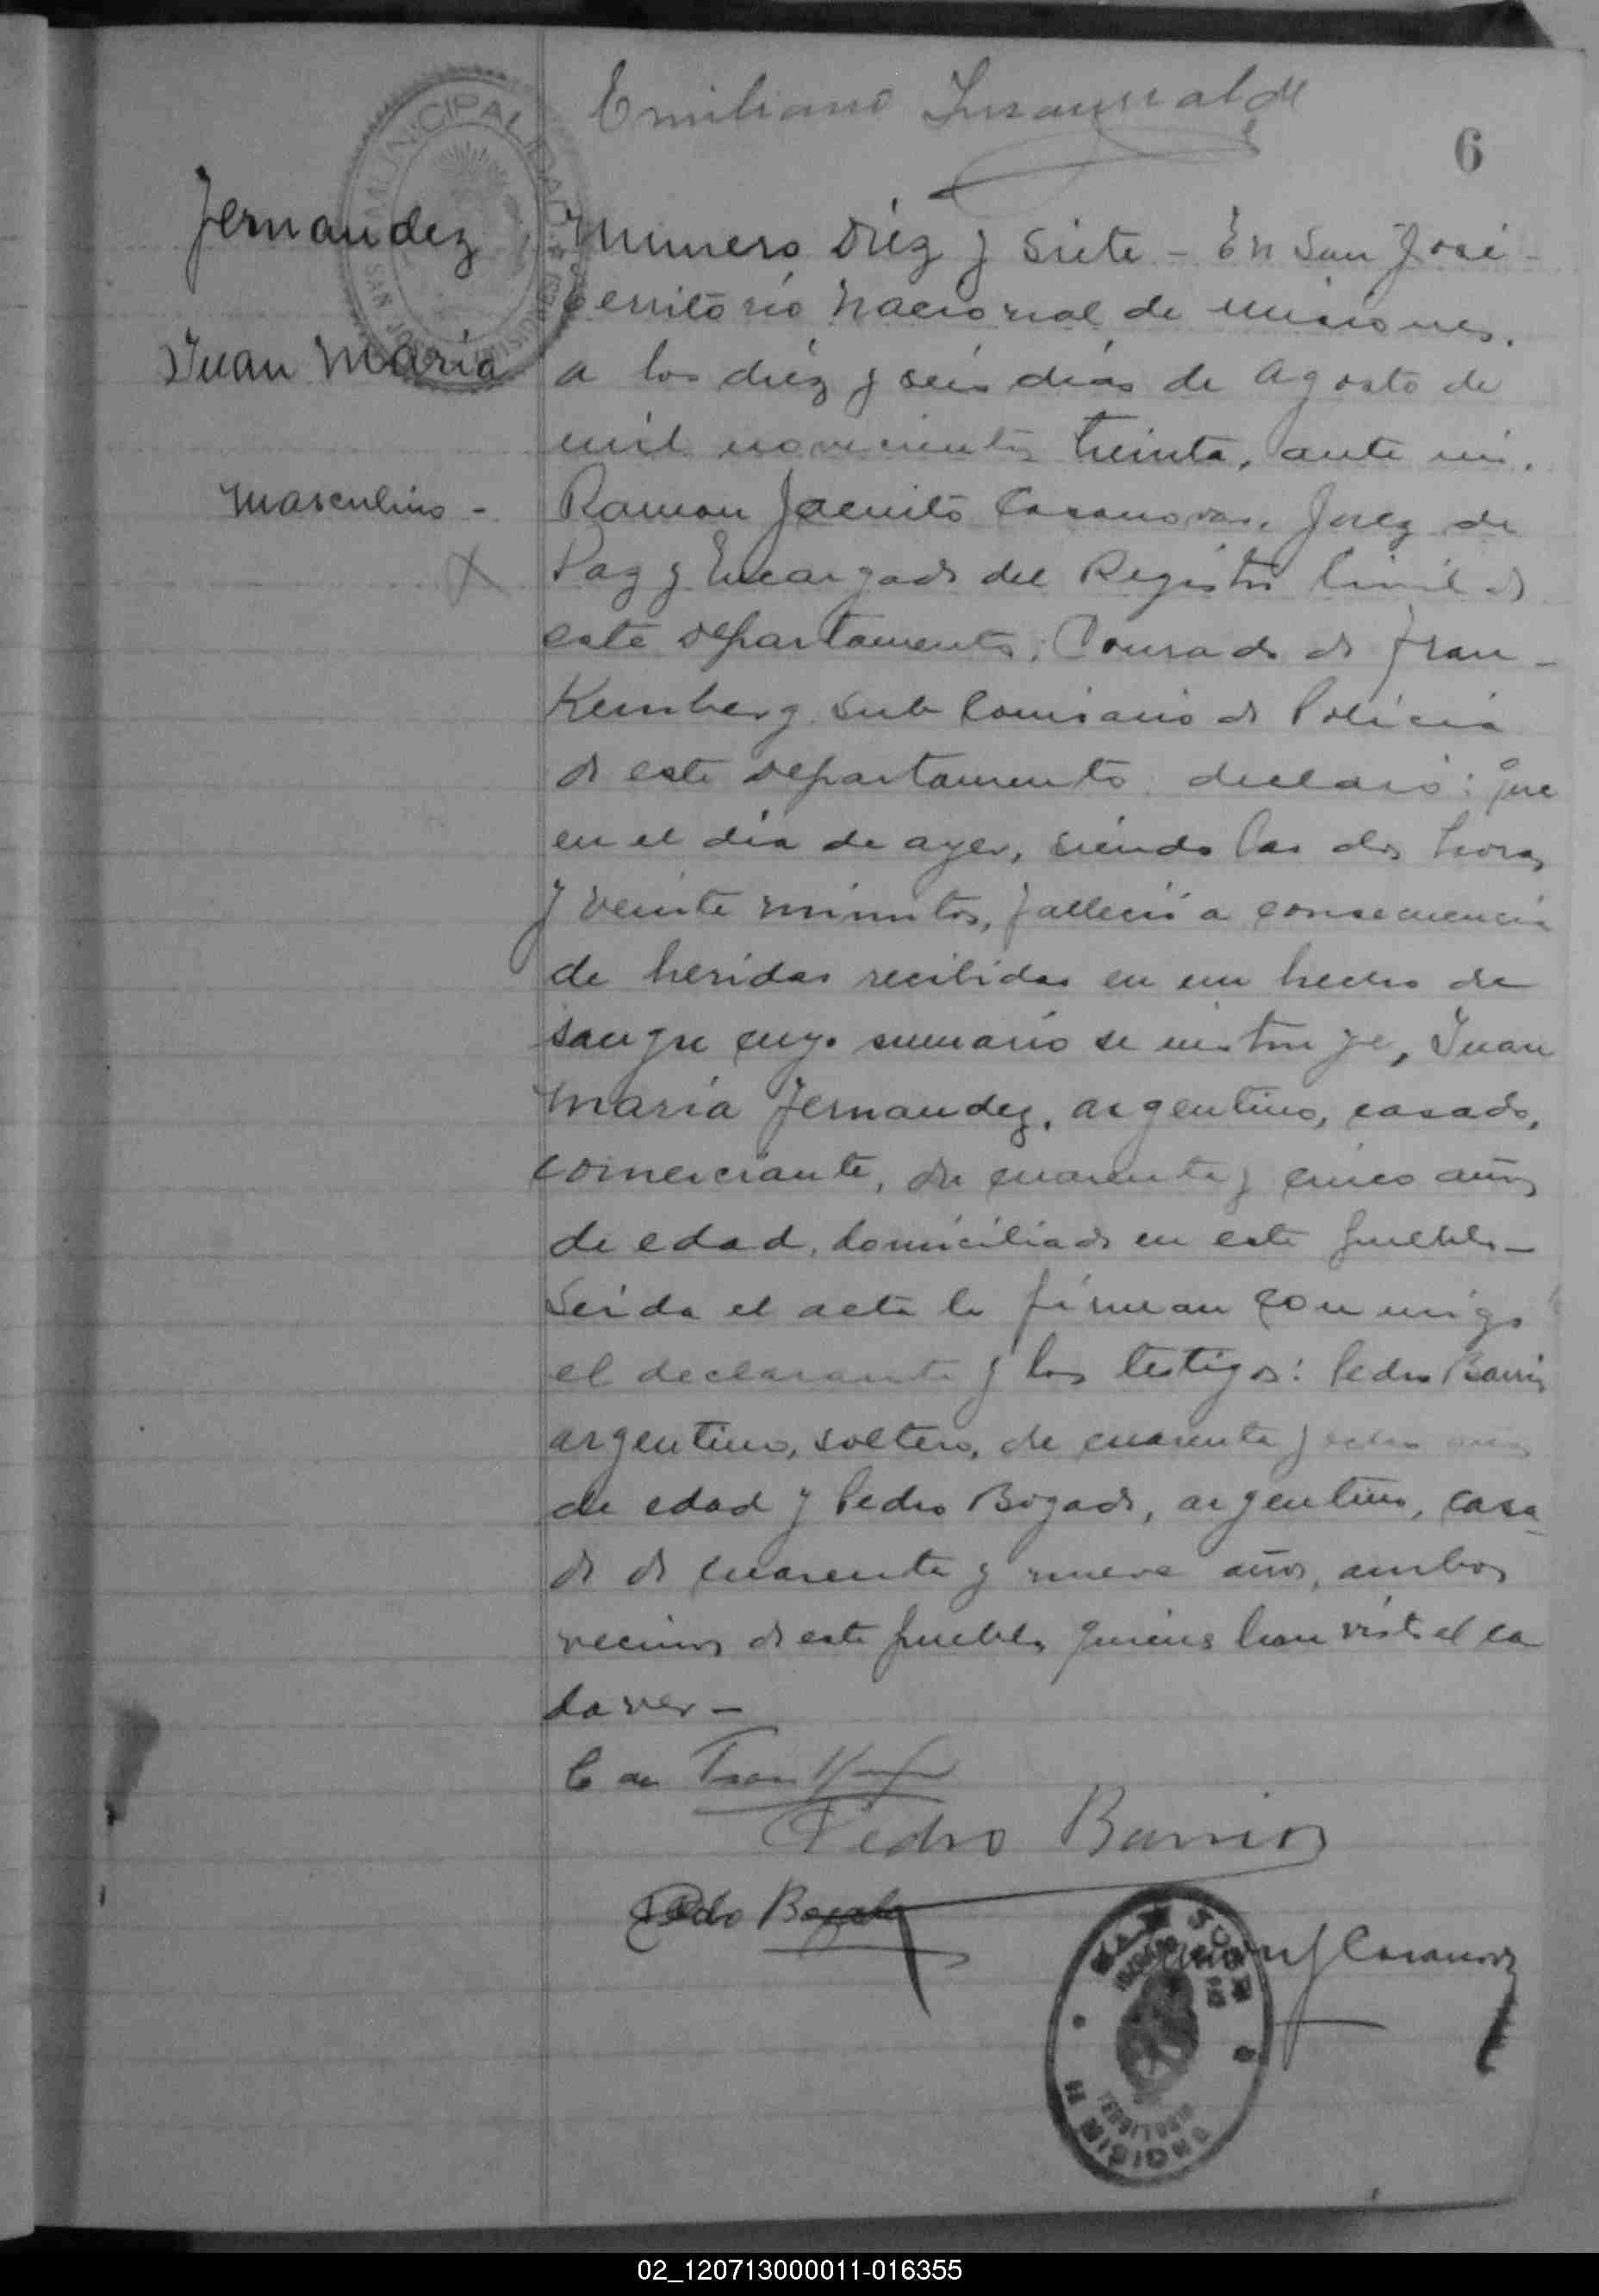 Emiliano Insaurralde
6
Fernandez
Juan María
Masculino -
MUNICIPALIDAD
SAN JOSE
Numero Diéz y Siete - En San José -
territorio Nacional de Misiones.
a los diéz y seis dias de Agosto de
mil novecientos treinta, ante mi,
Ramon Jacinto Casanovas, Juez de
Paz y Encargado del Registro Civil d
este departamento; Conrado d Fran-
Kemberg, sub Comisario d Policia
d este departamento declaró: que
en el dia de ayer, siendo las dos horas
y veinte minutos, falleció a consecuencia
de heridas recibidas en un hecho de
sangre cuyo sumario se instruye, Juan
María Fernandez, argentino, casado,
comerciante, de cuarenta y cinco años
de edad, domiciliado en este pueblo -
Leida el acta la firman conmigo
el declarante y los testigos: Pedro Barrios
argentino, soltero, de cuarenta y ocho años
de edad y Pedro Bogado, argentino, casa-
do d cuarenta y nueve años, ambos
vecinos d este pueblo quienes han visto el ca
daver -
Pedro Barrios
Pedro Bogado
Ramon J Casanovas
SAN JOSE
MISIONES
02_120713000011-016355